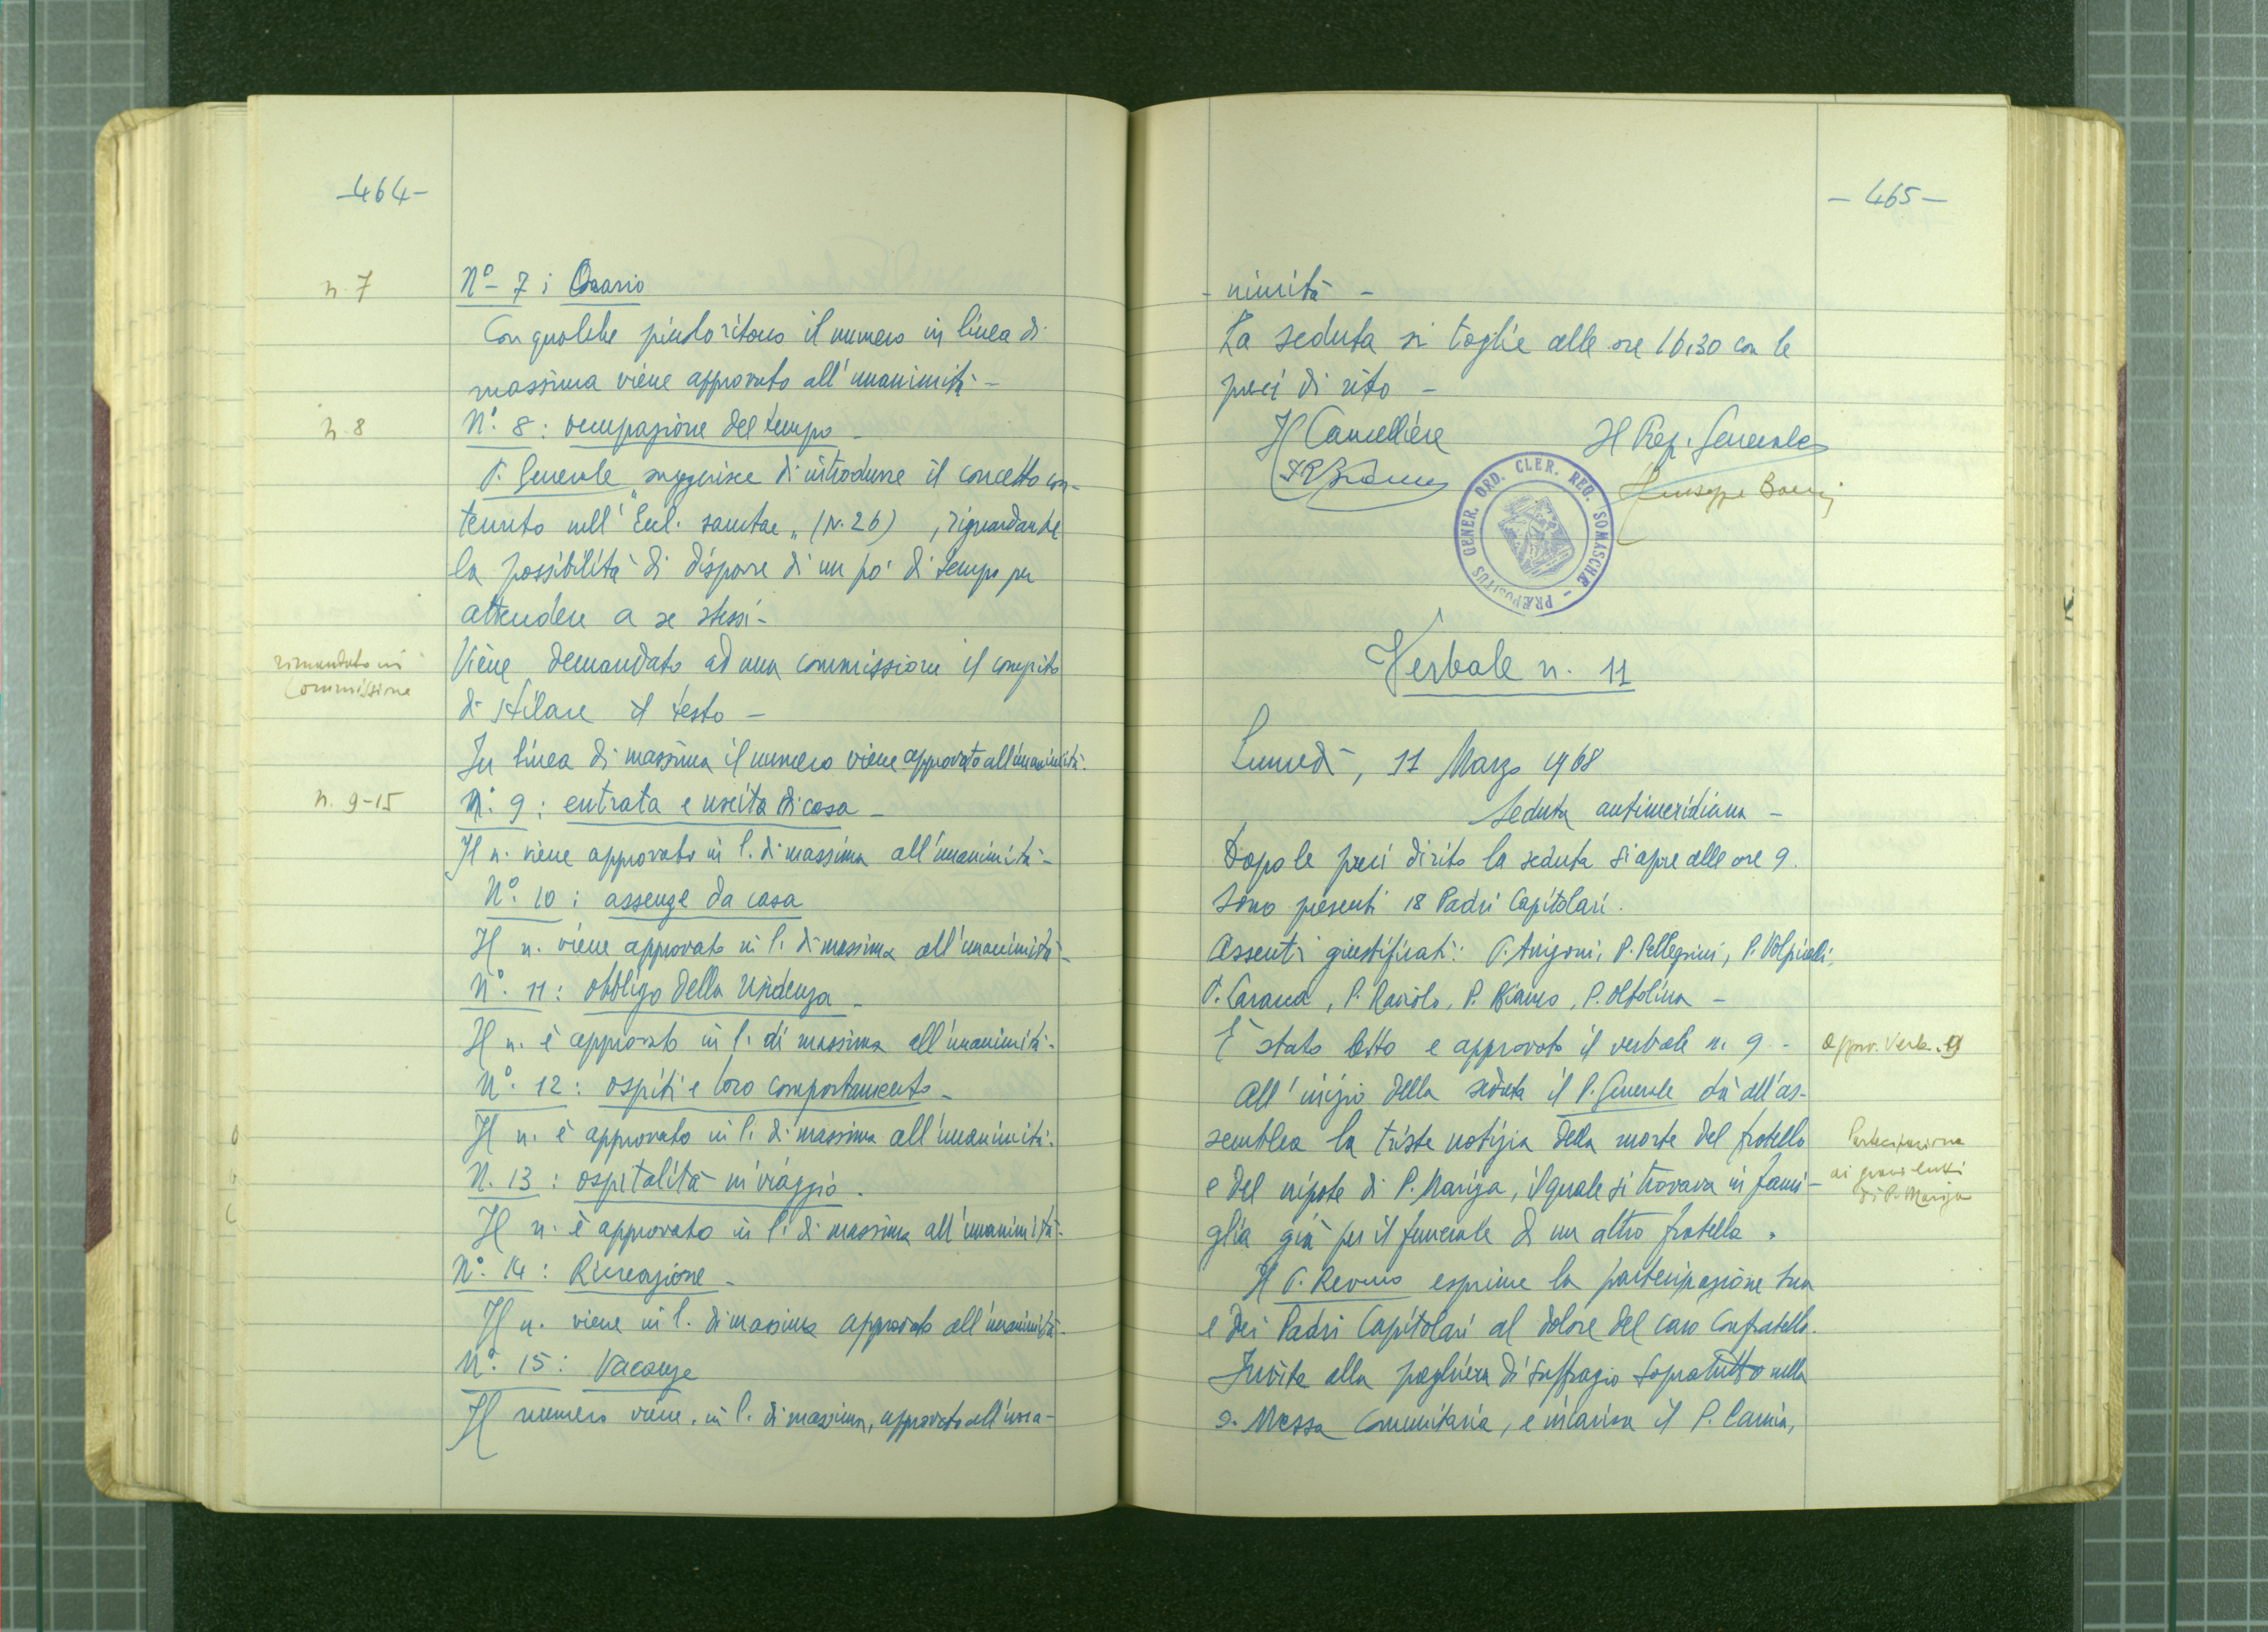 -464-
n. 7
N° - 7 : Orario
Con qualche piccolo ritocco il numero in linea di
massima viene approvato all'unanimità -
n. 8
N°. 8 : occupazione del tempo -
P. Generale suggerisce di introdurre il concetto con-
tenuto nell' "Eccl. sanctae" (N. 26) , riguardante
la possibilità di disporre di un po' di tempo per
attendere a se stessi -
rimandato in
Commissione
Viene demandato ad una commissione il compito
di stilare il testo -
In linea di massima il numero viene approvato all'unanimità.
n. 9-15
N°. 9 : entrata e uscita di casa -
Il n. viene approvato in l. di massima all'unanimità -
N°. 10 : assenze da casa
Il n. viene approvato in l. di massima all'unanimità -
N°. 11 : obbligo della residenza -
Il n. è approvato in l. di massima all'unanimità -
N°. 12 : ospiti e loro comportamento -
Il n. è approvato in l. di massima all'unanimità -
N. 13 : ospitalità in viaggio .
Il n. è approvato in l. di massima all'unanimità -
N°. 14 : Ricreazione -
Il n. viene in l. di massima approvato all'unanimità -
N°. 15 : Vacanze
Il numero viene, in l. di massima, approvato all'una-
- 465 -
- nimità -
La seduta si toglie alle ore 16,30 con le
preci di rito -
Il Cancelliere Il Prep. Generale
Giuseppe
PRÆPOSITUS GENER. ORD. CLER. REG. SOMASCHÆ -
Verbale n. 11
Lunedì, 11 Marzo 1968
Seduta antimeridiana -
Dopo le preci di rito la seduta si apre alle ore 9.
Sono presenti 18 Padri Capitolari.
Assenti giustificati: P. Arrigoni, P. Pellegrini, P. Volpicelli,
P. Raviolo, P. Bianco, P. Oltolina -
È stato letto e approvato il verbale n. 9 -
approv. Verb. 9
All'inizio della seduta il P. Generale dà all'as-
semblea la triste notizia della morte del fratello
e del nipote di P. Mariga, il quale si trovava in fami-
glia già per il funerale di un altro fratello .
Partecipazione
ai gravi lutti
di P. Mariga
Il P. Rev.mo esprime la partecipazione sua
e dei Padri Capitolari al dolore del caro Confratello.
Invita alla preghiera di suffragio sopratutto nella
S. Messa Comunitaria, e incarica il P.